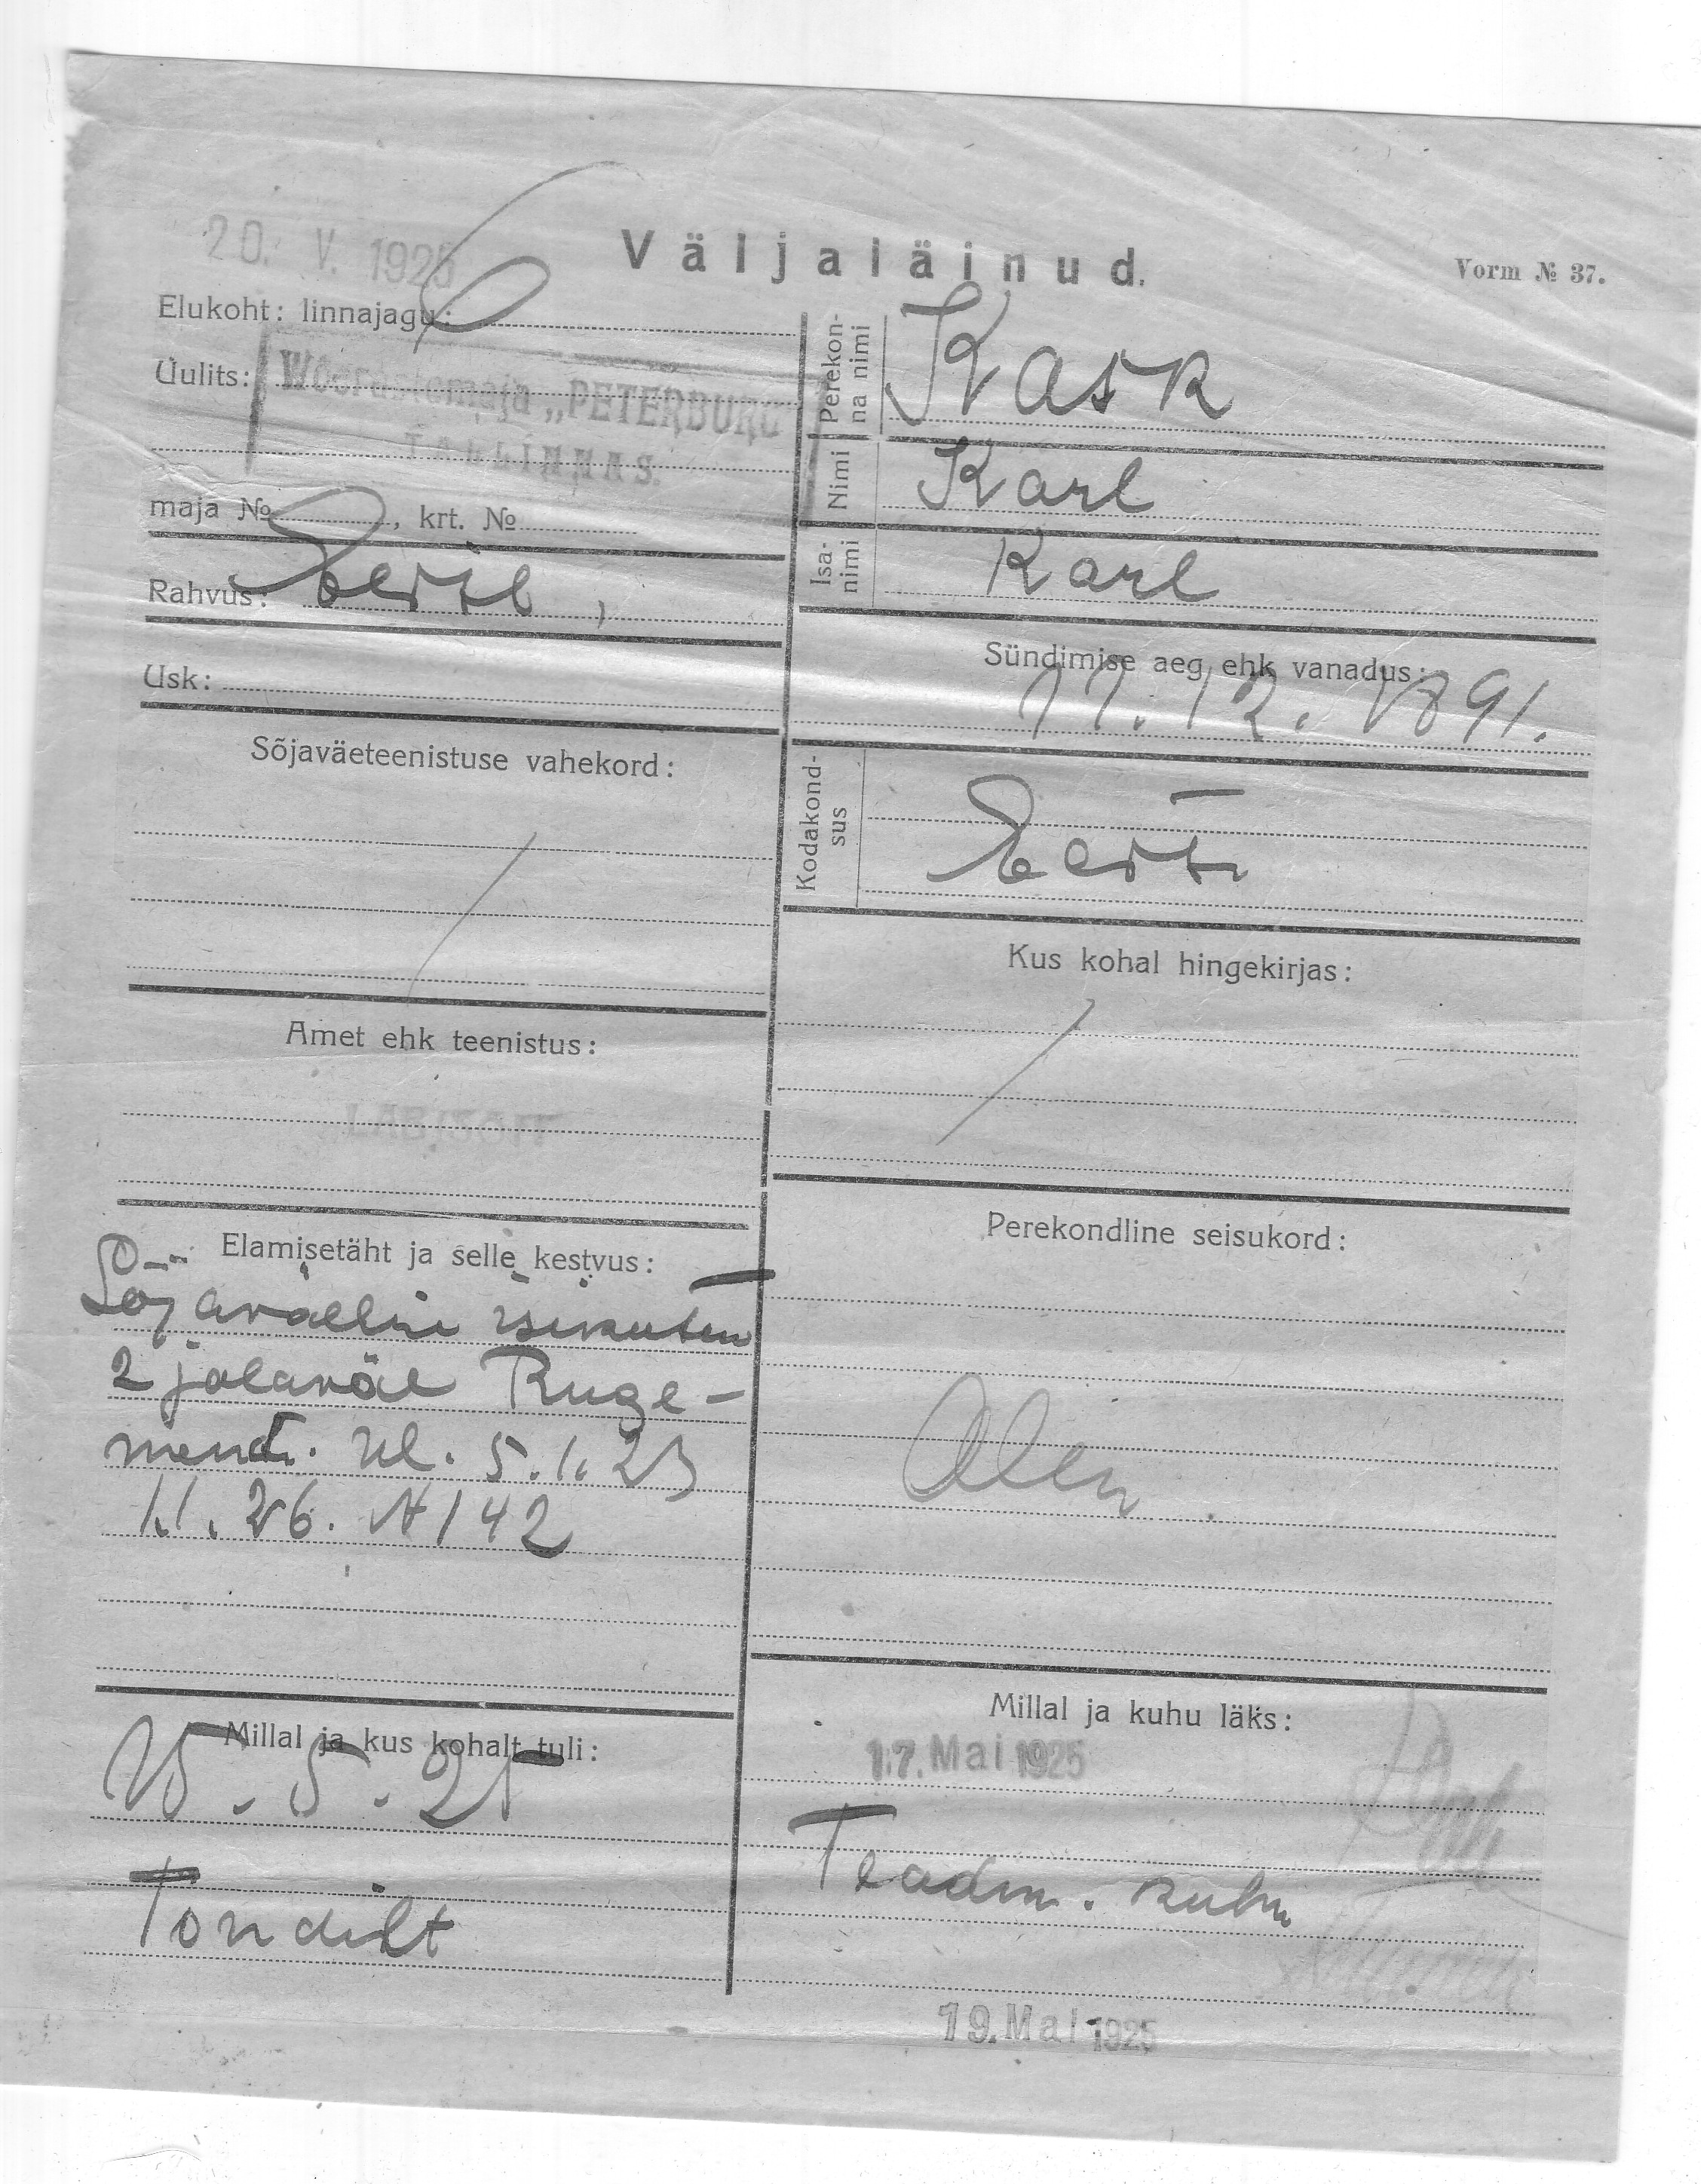 20. V. 1925
Väljaläinud.
Vorm № 37.
Elukoht: linnajagu:
Uulits: Wõõrastemaja „PETERBURG
TALLINNAS.
maja № , krt. №
Rahvus: Eestl,
Usk:
Sõjaväeteenistuse vahekord:
Amet ehk teenistus:
Elamisetäht ja selle kestvus:
Sõjaväeline isikutun
2 jalaväe Ruge-
mendi. ül. 5.1.25
1.1.26. № 142
Millal ja kus kohalt tuli:
15.5.25
Tondilt
Perekonna nimi Kask
Nimi Karl
Isanimi Karl
Sündimise aeg ehk vanadus:
11.12.1891.
Kodakondsus Eesti
Kus kohal hingekirjas:
Perekondline seisukord:
Millal ja kuhu läks:
17. Mai 1925
Teadm. kuhu
19. Mai 1925